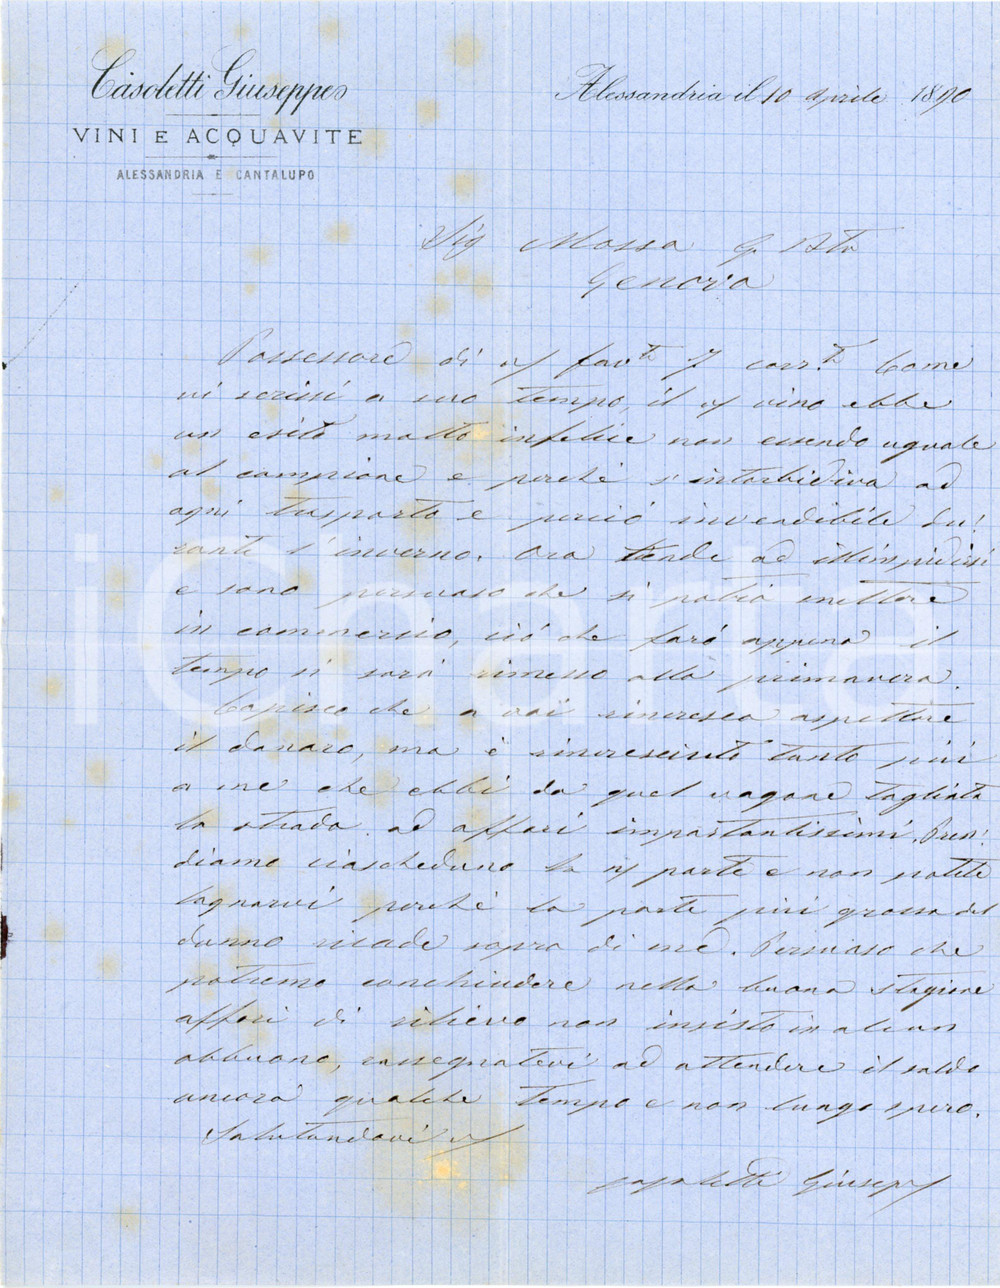 Casoletti Giuseppe
VINI E ACQUAVITE
ALESSANDRIA E CANTALUPO
Alessandria il 10 Aprile 1890
Sig Mossa G. Bta
Genova
Possessore di v/ favta 7 corrte. Come
vi scrissi a suo tempo, il v/ vino ebbe
un esito molto infelice non essendo uguale
al campione e perché s'intorbidiva ad
ogni trasporto e perciò invendibile du:
rante l'inverno. Ora tende ad illimpidirsi
e sono persuaso che si potrà mettere
in commercio, ciò che farò appena il
tempo si sarà rimesso alla primavera.
Capisco che a voi rincresca aspettare
il danaro, ma è rincresciuto tanto più
a me che ebbi da quel vagone tagliata
la strada ad affari importantissimi. Pren:
diamo ciascheduno la n/ parte e non potete
lagnarvi perché la parte più grossa del
danno ricade sopra di me. Persuaso che
potremo conchiudere nella buona stagione
affari di rilievo non insisto in alcun
abbuono, rassegnatevi ad attendere il saldo
ancora qualche tempo e non lungo spero.
Salutandovi v/
Casoletti Giuseppe
iCharta